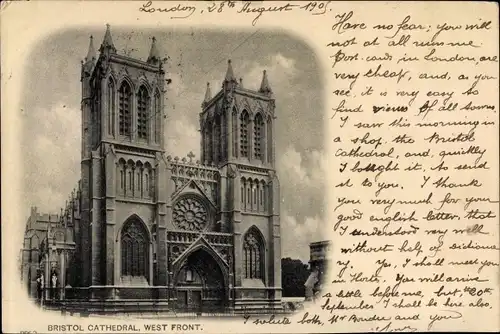 London, 28th August 190
Have no fear; you will
not at all ruin me
Post-cards in London, are
very cheap, and, as you
see, it is very easy to
find views of all towns
I saw this morning in
a shop, the Bristol
Cathedral, and, quickly
I bought it, to send
it to you. I thank
you very much for your
good english letter, that
I understood very well
without help of dictiona
ry. You, I shall meet you
in Horta. You will arrive
a little before me, but, the 20th
September I shall be here also
I salute both, Mr and you
BRISTOL CATHEDRAL, WEST FRONT.